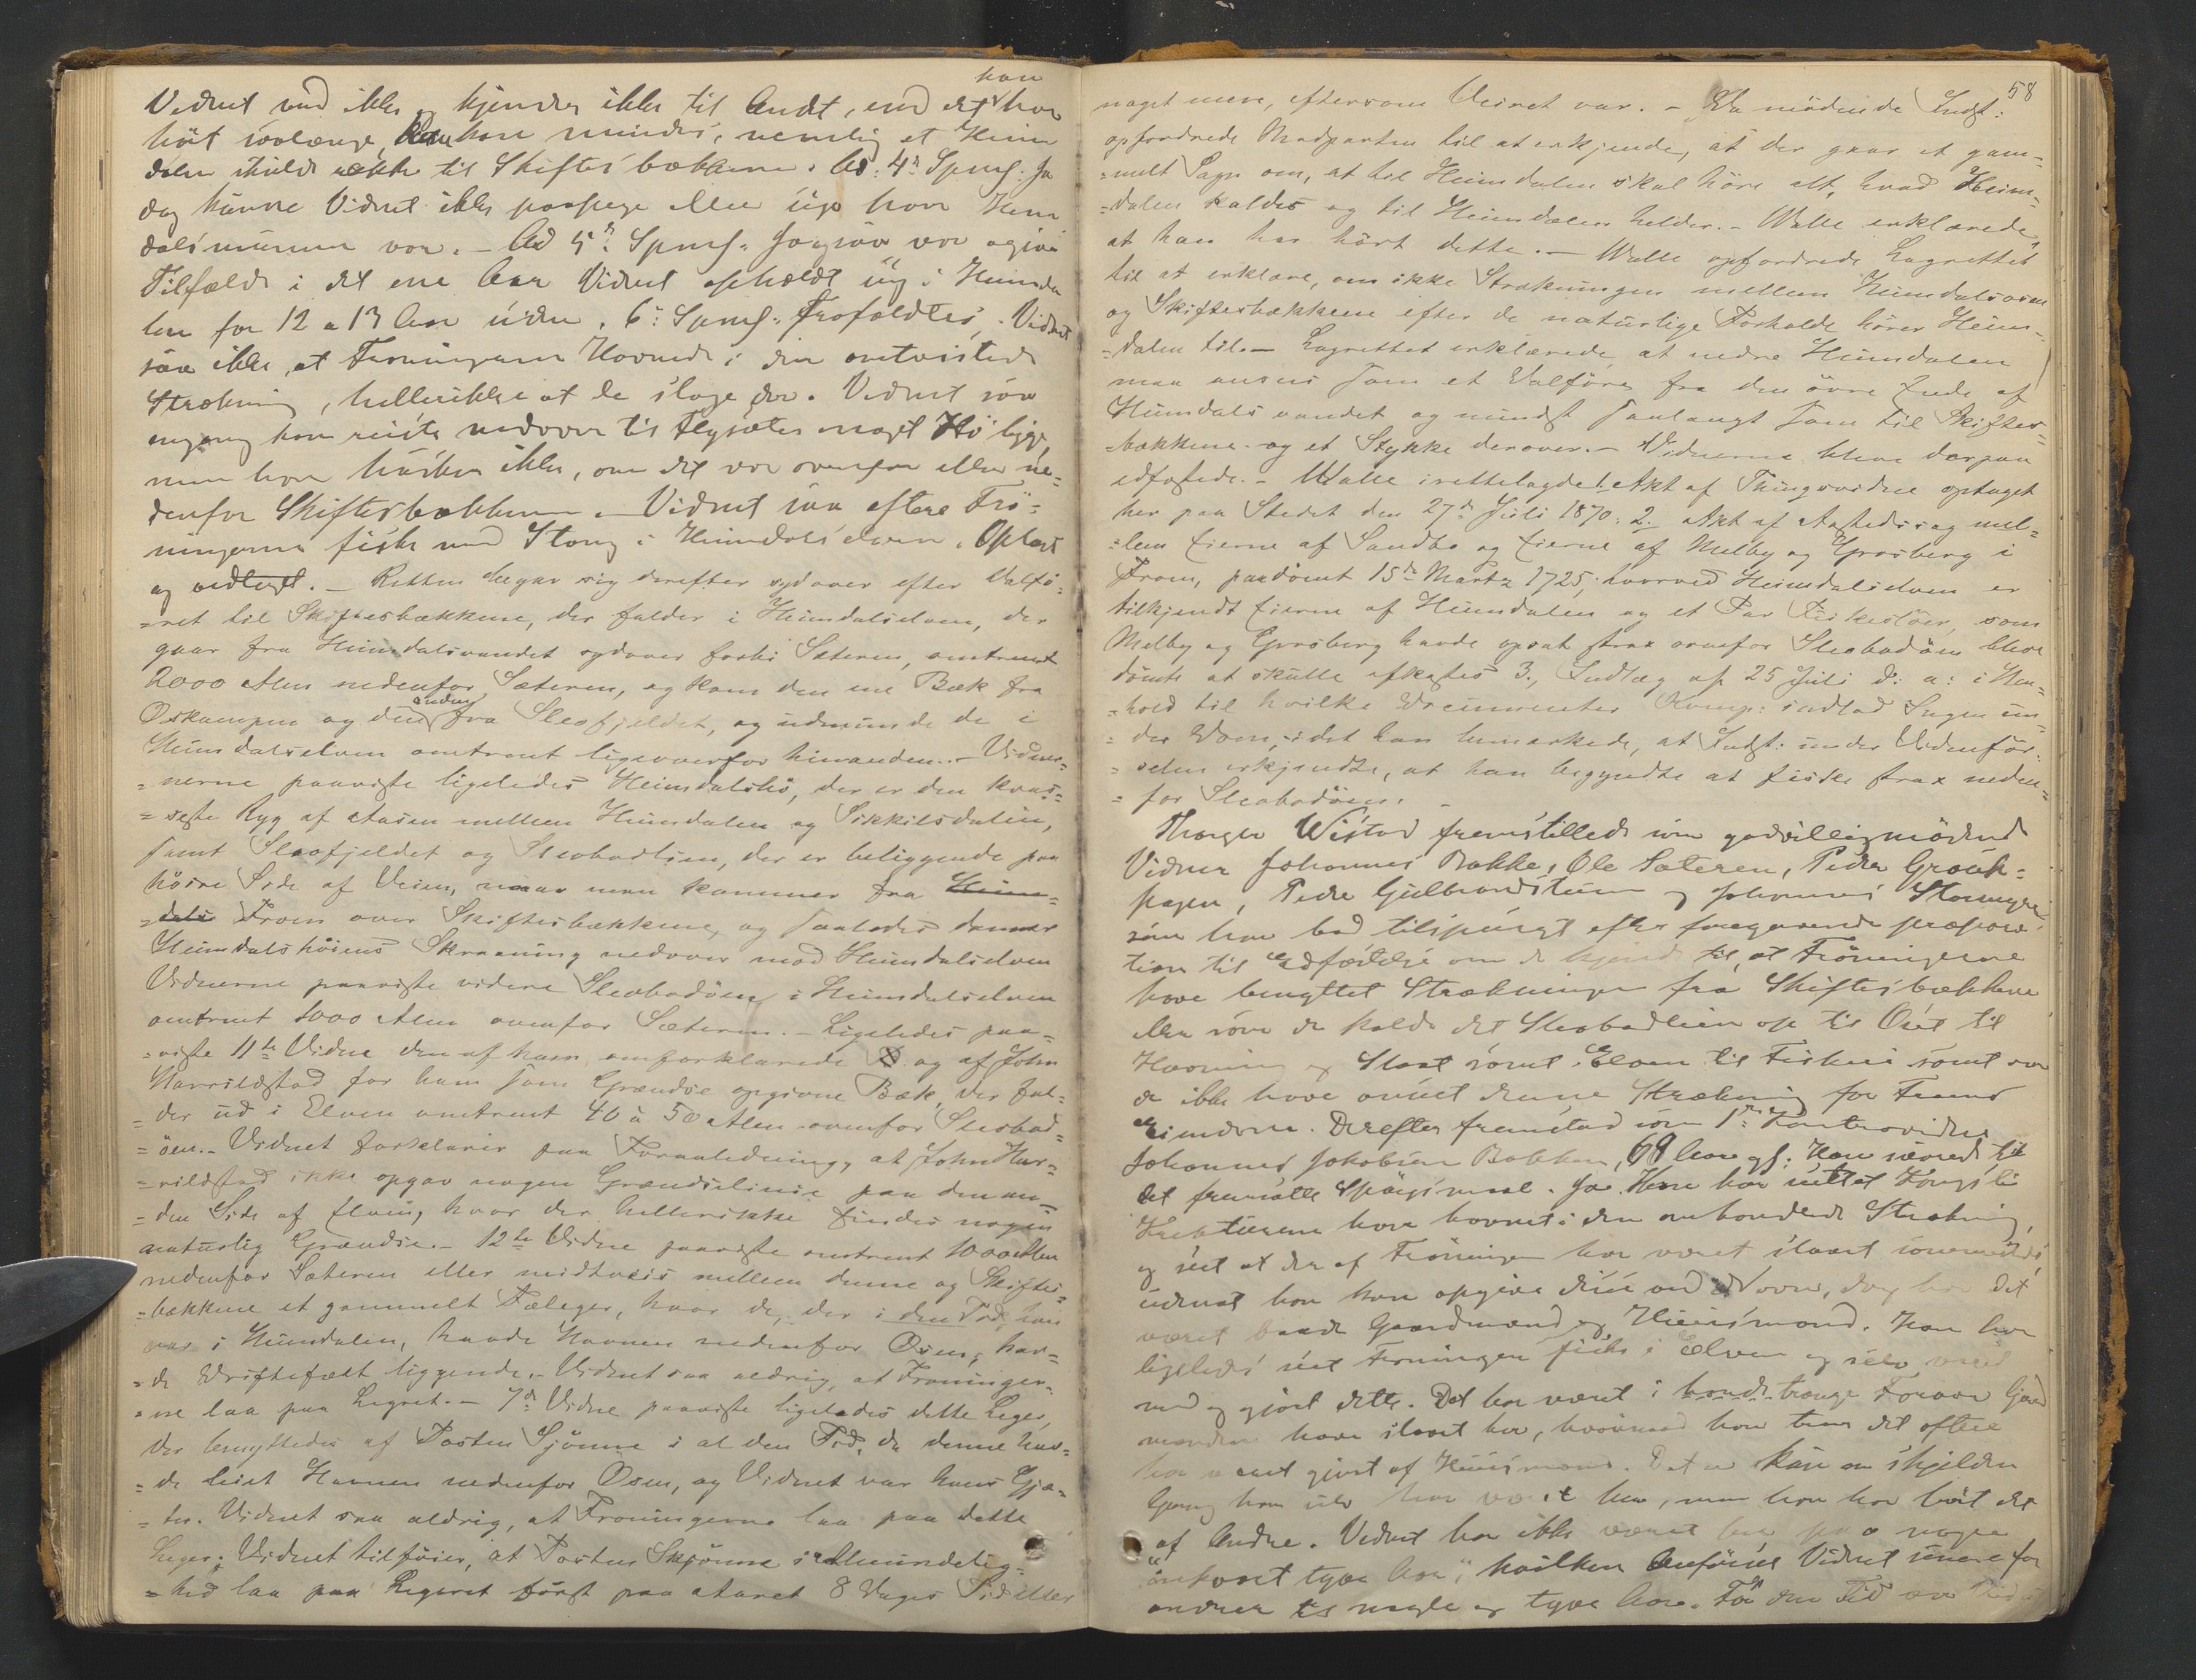 han
Vidnet ved ikke og kjender ikke til Andet, end det han har
hört saalænge, han mindes, nemlig at Heim
dalen skulde række til Skiftesbækkene. Ad 4de Spmf. Ja
dog kunne Vidnet ikke paapege eller sige hvor Heim
dalsmunnen var. - Ad 5te Spmf. Jagsaa var ogsaa
Tilfælde i det ene Aar Vidnet opholdt sig i Heimda
len for 12 a 13 Aar siden. 6te Spmf. Frafaldtes. Vidnet
saa ikke, at Fröningerne Havnede i den omtvistede
Strækning, hellerikke at de sloge der. Vidnet saa
engang han reiste nedover til Flysæter noget Hö ligge
men han husker ikke, om det var ovenfor eller ne-
denfor Skiftesbækkene. - Vidnet saa oftere Frö-
ningerne fiske med Stang i Heimdalselven. Oplæst
og vedtaget. - Retten begav sig derefter sydover efter Valfö-
=ret til Skiftesbækkene, der falder i Heimdalselven, der
gaar fra Heimdalsvandet sydover forbi Sæteren, omtrent
2000 Alen nedenfor Sæteren, og kom den ene Bæk fra
Oskampen og den anden fra Sleafjeldet, og udmunde de i
Heimdalselven omtrent ligeoverfor hinanden. - Vid-
=nerne paaviste ligeledes Heimdalshö, der er den kvas-
=seste Ryg af Aasen mellem Heimdalen og Sikkilsdalen,
samt Sleafjeldet og Sleabadlien, der er beliggende paa
höire Side af Veien, naar man kommer fra Heim-
=dals From over Skiftesbækkene, og saaledes danner
Heimdalshöiens Skraaning nedover mod Heimdalselven
Vidnerne paaviste videre Sleabadöen i Heimdalselven
omtrent 1000 Alen ovenfor Sæteren. - Ligeledes paa-
=viste 11te Vidne den af ham omforklarede og af John
Harrildstad for ham som Grændse opgivne Bæk, der fal-
=der ud i Elven omtrent 40 à 50 Alen ovenfor Sleabad-
=öen. - Vidnet forklarer paa Foranledning, at John Har-
=rildstad ikke opgav nogen Grændselinie paa den an-
=den Side af Elven, hvor der hellerikke findes nogen
naturlig Grændse. - 12te Vidne paaviste omtrent 1000 Alen
nedenfor Sæteren eller midtveis mellem denne og Skiftes-
=bækkene et gammelt Fæleger, hvor de, der i den Tid, han
var i Heimdalen, havde Havnen nedenfor Osen, hav-
=de Driftefæet liggende. - Vidnet saa aldrig, at Fröninger-
=ne laa paa Legret. - 7de Vidne paaviste ligeledes dette Leger,
der benyttedes af Posten Sjönne i al den Tid, da denne hav-
=de leiet Havnen nedenfor Osen, og Vidnet var hans Gjæ-
=ter. Vidnet saa aldrig, at Fröningerne laa paa dette
Leger. Vidnet tilföier, at Posten Skjönne i Almindelig-
=hed laa paa Legeret först paa Aaret 8 Dages Tid eller
58
noget mere, eftersom Veiret var. - Da mödende Indst:
opfordrede Modparten til at erkjende, at der gaar et gam-
=melt Sagn om, at til Heimdalen skal höre alt, hvad Heim-
=dalen kaldes og til Heimdalen helder. - Walle erklærede,
at han har hört dette. - Walle opfordrede Lagrettet
til at erklære, om ikke Strækningen mellem Heimdalsosen
og Skiftesbækkene efter de naturlige Forholde hörer Heim-
=dalen til. - Lagrettet erklærede, at nedre Heimdalen
maa ansees som et Valföre, fra den övre Ende af
Heimdalsvandet og mindst saalangt som til Skiftes-
bækkene og et Stykke derover. - Vidnerne bleve derpaa
edfæstede. - Walle irettelagde 1. Akt af Thingsvidne optaget
her paa Stedet den 27de Juli 1870. 2. Akt af Aastedssag mel-
=lem Eierne af Sandbo og Eierne af Melby og Grosberg i
From, paadömt 15de Martz 1725, hvorved Heimdalselven er
tilkjendt Eierne af Heimdalen og et Par Fiskestöer, som
Melby og Grosberg havde opsat strax ovenfor Sleabadöen bleve
dömte at skulle afkastes 3., Indlæg af 25 Juli d: a: i Hen-
=hold til hvilke Documenter Komp: indlod Sagen un-
=der Dom, idet han bemærkede, at Indst: under Vidneför-
=selen erkjendte, at han begyndte at fiske strax neden-
=for Sleabadöen. -
Thorger Wistad fremstillede som godvilligmödende
Vidner Johannes Bakke, Ole Sæteren, Peder Grouk-
hagen, Peder Gulbrandstuen og Johannes
som han bad tilspurgt efter foregaaende præpara-
tion til Edfæstelse om de kjende til, at Fröningerne
have benyttet Strækningen fra Skiftesbækkene
eller som de kalde det Sleabadlien op til Oset til
Havning og Slaat samt Elven til Fiskeri samt om
de ikke have anseet denne Strækning for Frons
Eiendom. Derefter fremstod som 1ste Kontravidne
Johannes Jakobsen Bakken, 69 Aar gl: Han svarede til
det fremsatte Spörgsmaal. Ja. Han har seet at
Kreaturene have havnet i den omhandlede Strækning,
og seet at der af Fröninger har været slaaet sommerstid,
uden at han kan opgive disse ved Navn, dog har det
været baade Gaardmænd og Huusmænd. Han har
ligeledes seet Fröninger fiske i Elven og selv været
med og gjort dette. Det har været i haarde trange Foraar Gaard
mændene have slaaet her, hvorimod han tror det oftere
har været gjort af Huusmænd. Det er kun en skjelden
Gang han selv har været her, men han har hört det
af Andre. Vidnet har ikke været her paa nogen
"önkoret tyve Aar", hvilken Anförsel Vidnet senere for
andrer til nogle og tyve Aar. För den Tid var